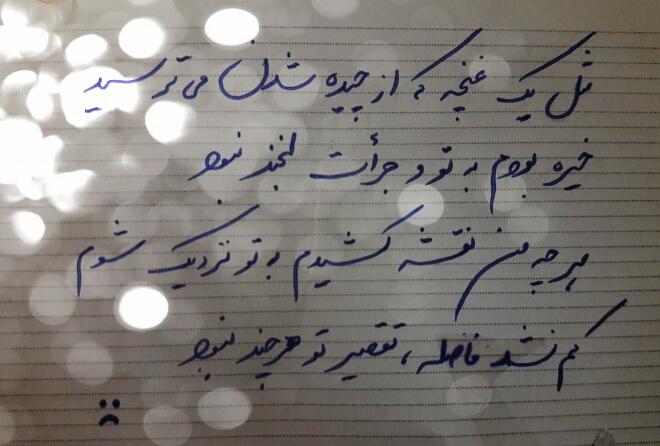 مثل یک غنچه که از چیده شدن می ترسید
خیره بودم به تو و جرأت لبخند نبود
هر چه من نقشه کشیدم به تو نزدیک شوم
کم نشد فاصله ، تقصیر تو هرچند نبود